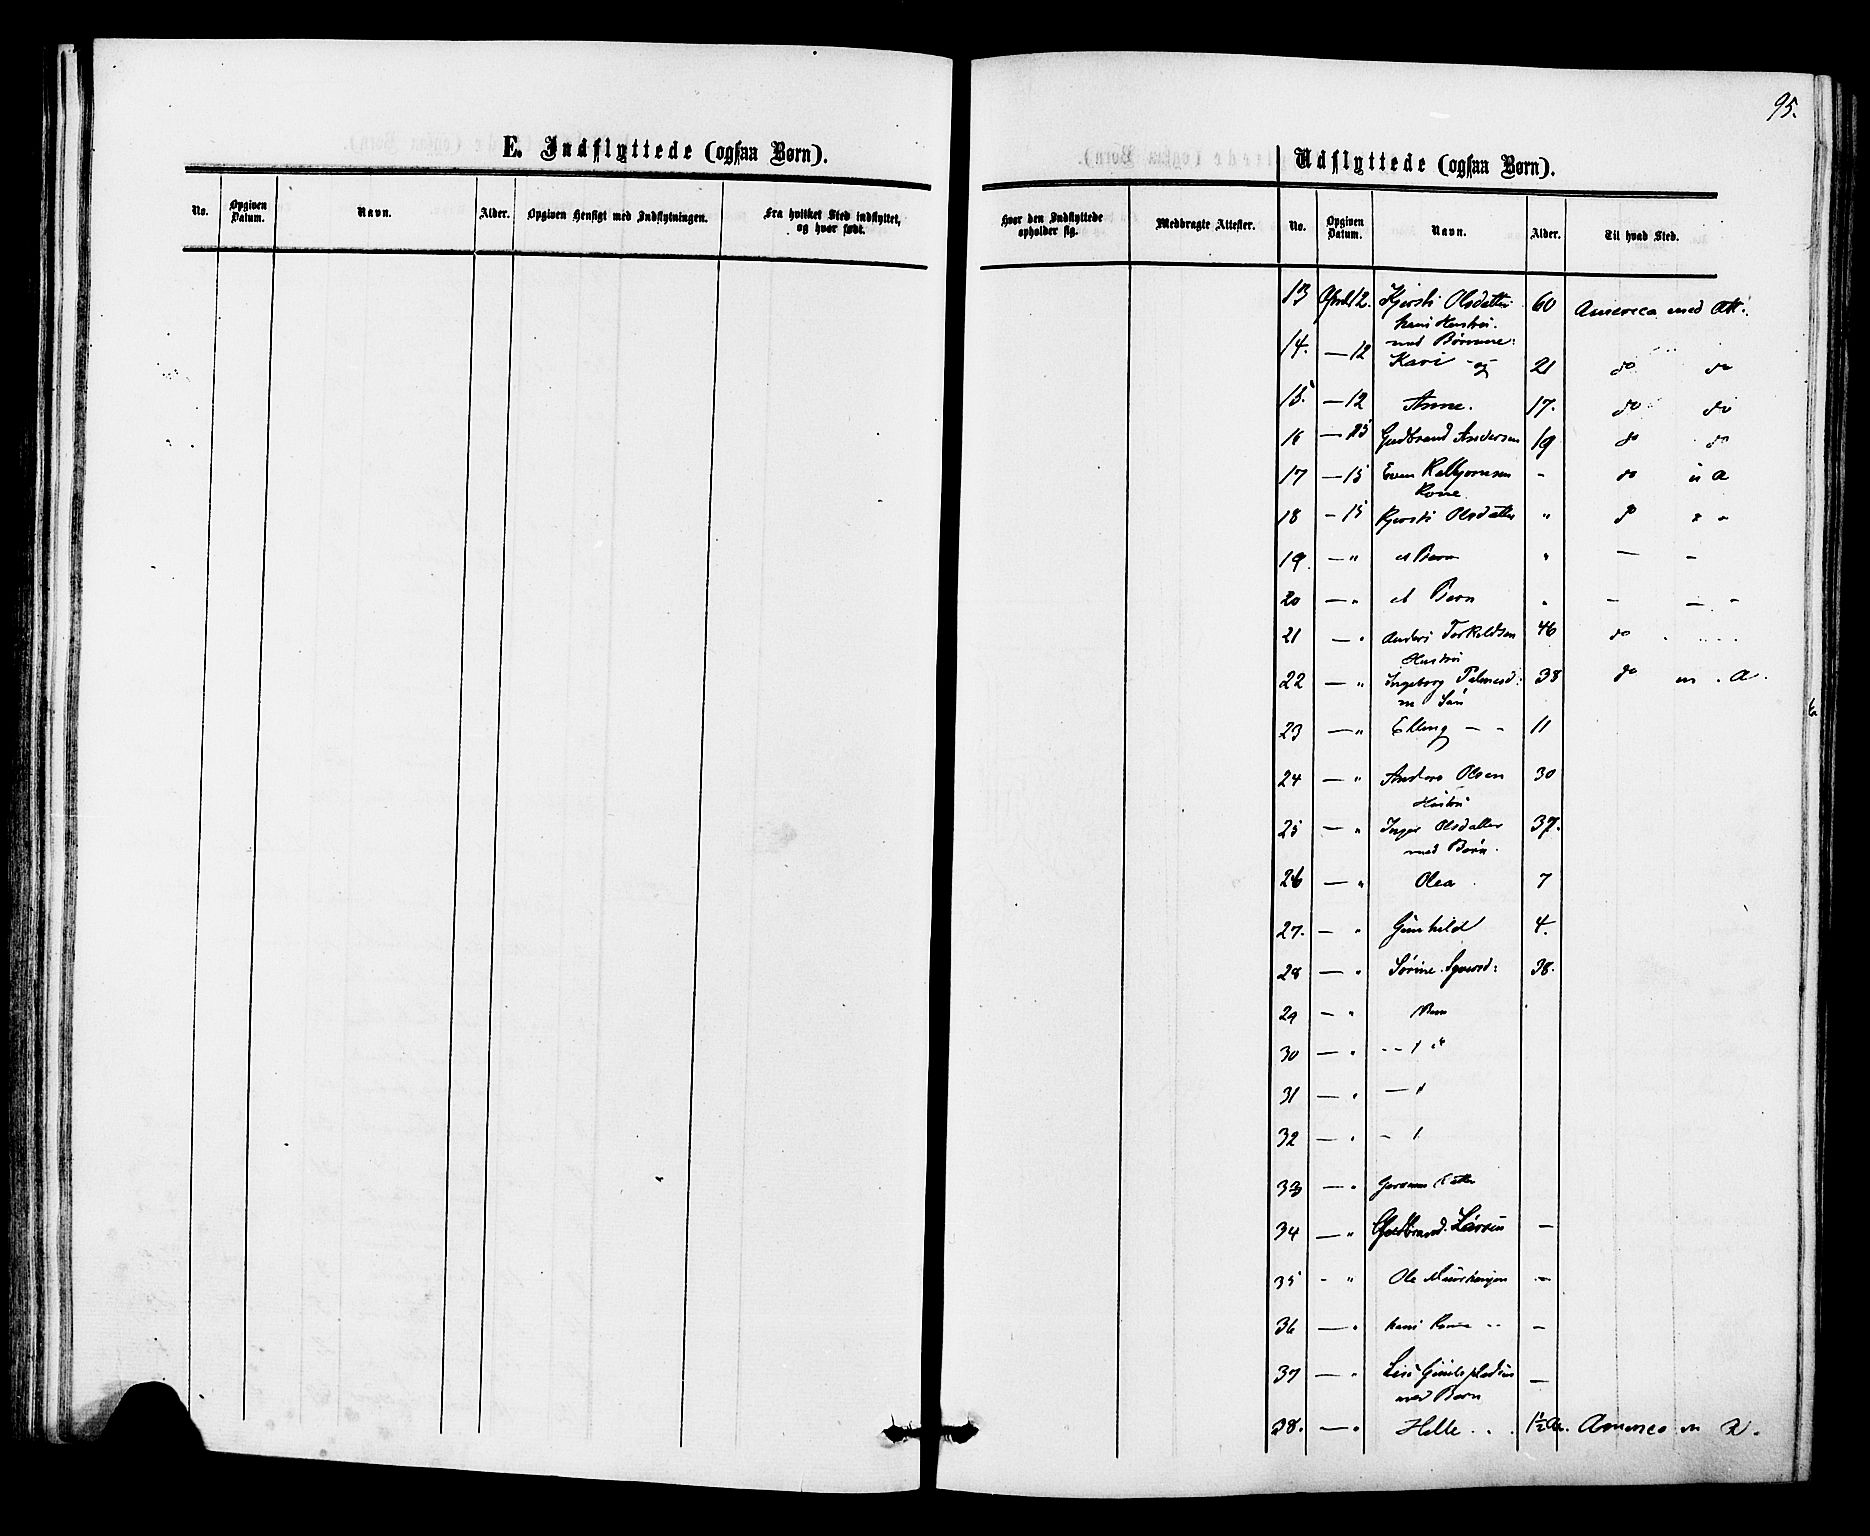 95.
E. Indflyttede (ogsaa Børn).
No.
Opgiven Datum.
Navn.
Alder.
Opgiven Hensigt med Indflytningen.
Fra hvilket Sted indflyttet, og hvor født.
Hvor den Indflyttede opholder sig.
Medbragte Attester.
Udflyttede (ogsaa Børn).
No.
Opgiven Datum.
Navn.
Alder.
Til hvad Sted.
13 April 12. Kjersti Olsdatter 60 America med Att:
hans Hustru.
med Børnene:
14. — 12 Kari - og 21 do do
15. — 12 Anne. 17. do do
16 — 15 Gudbrand Andersen 19 do do
17 — 15 Even - do A
18 — 15 Kjersti Olsdatter " do
19. — " et Barn " — —
20 — " et Barn " — — —
21 — " Anders Torkildsen 46 do
Hustru
22 — " Ingeborg 38 do m. A.
m Søn
23 — " Elling — — 11
24 — " Anders Olsen 30
Hustru
25 — " Inger Olsdatter 37.
med Børn.
26 — " Olea 7
27. — " Gunhild 4.
28 — " Sørine 38.
29 — " Barn
30 — " -- 1 "
31 — " — 1
32 — " — 1
33 — "
34 — " Gudbrand Larsen —
35 - " Ole —
36 — " —
37 — " —
med Barn
38. — " Helle . . 1½ America m A.